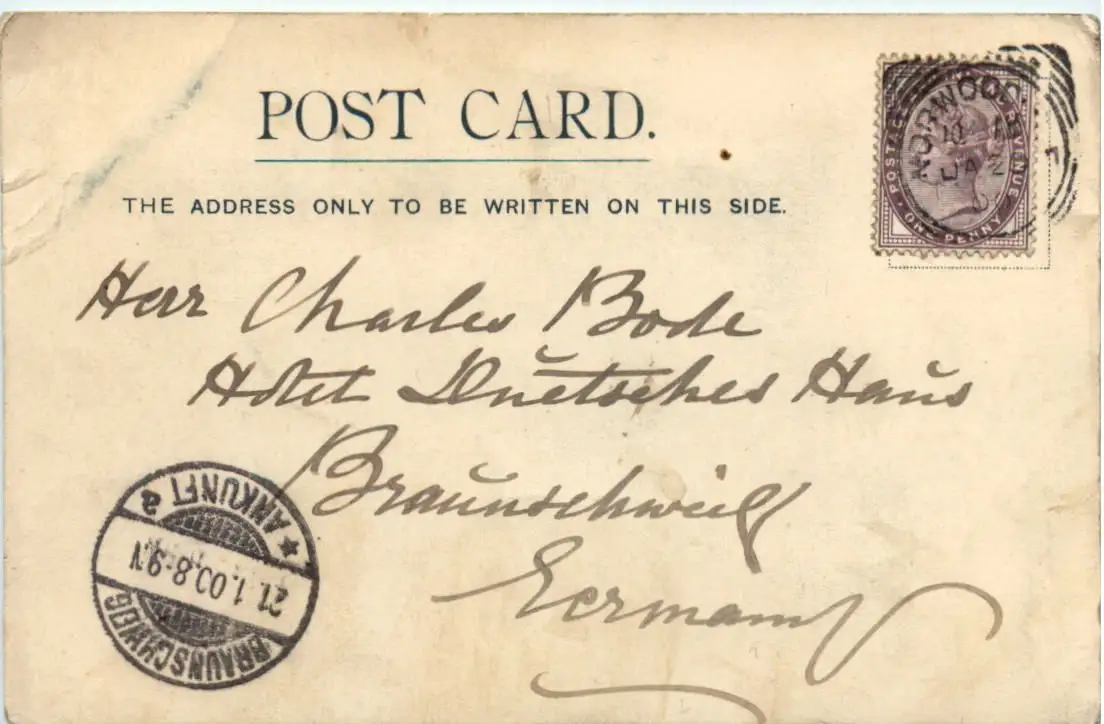 POST CARD.
THE ADDRESS ONLY TO BE WRITTEN ON THIS SIDE.
POSTAGE REVENUE
ONE PENNY
NORWOOD
JA 2
Herr Charles Bode
Hotel Duetsches Haus
Braunschweig
Germany
BRAUNSCHWEIG
21.1.00.8-9.V
★ ANKUNFT a